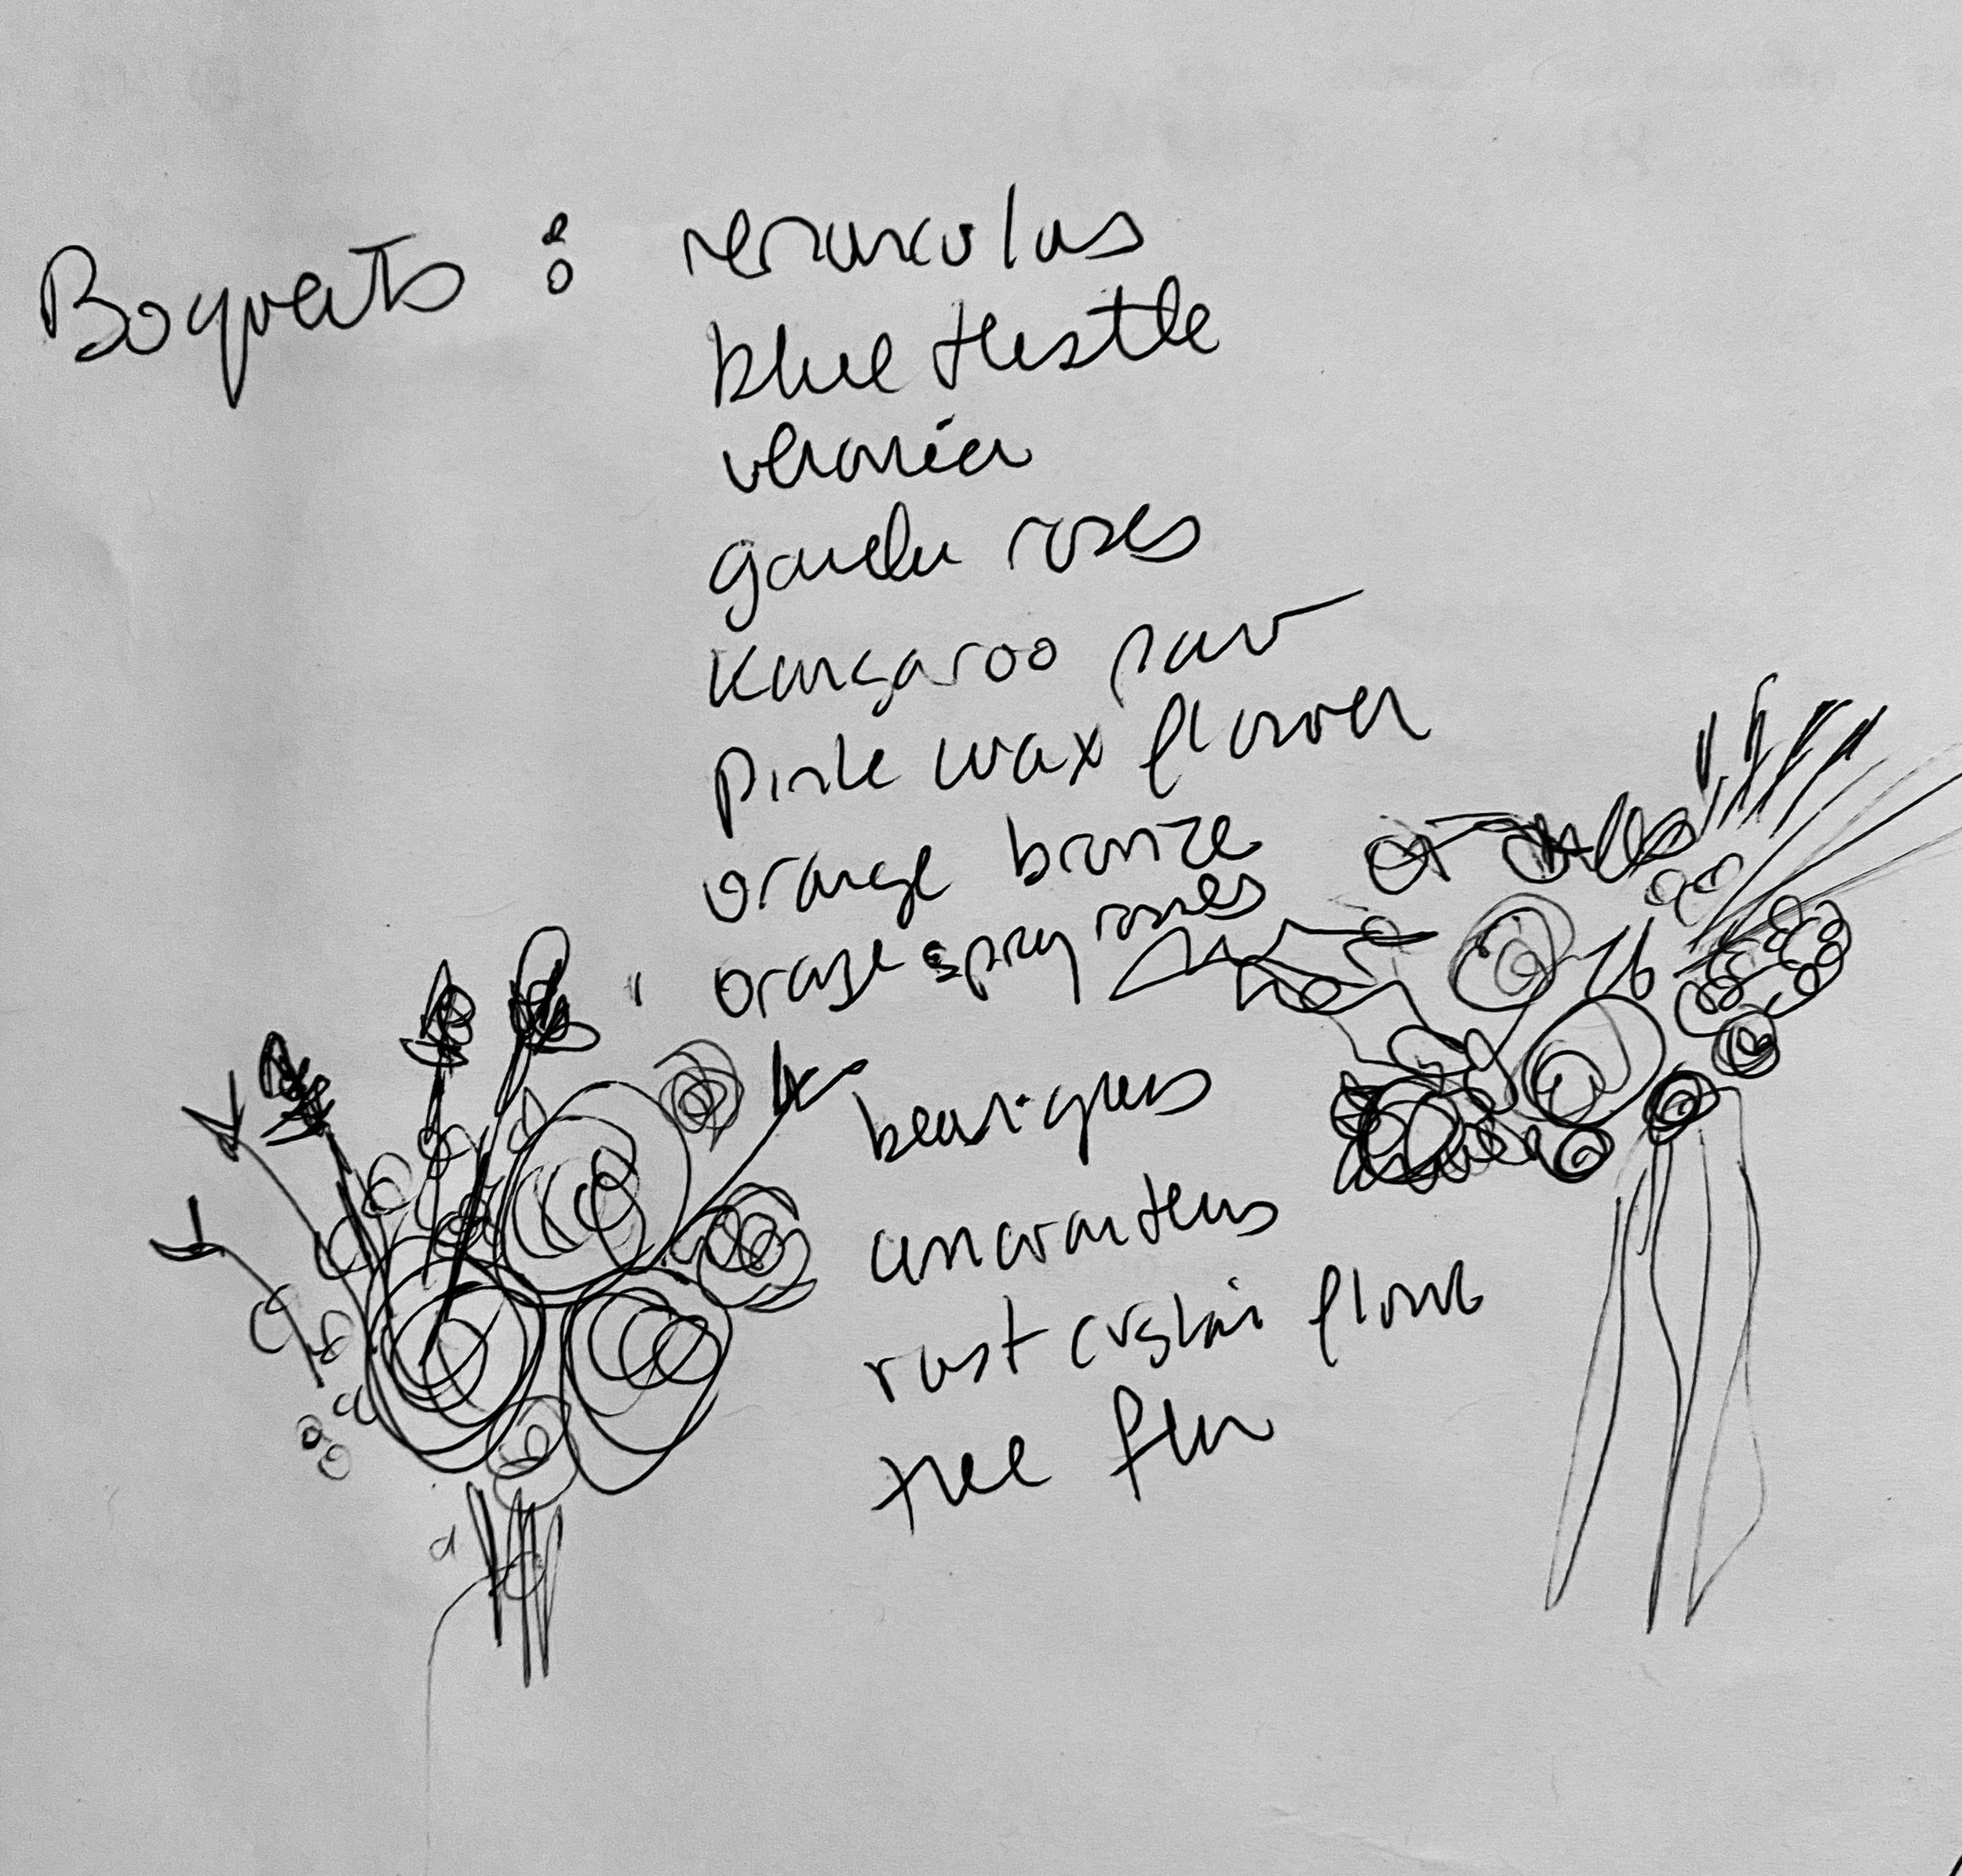 Boquets : renunculus
blue thistle
veronica
garden roses
kangaroo paw
pink wax flower
orange bronze
orange spray roses
bear grass
amarantus
rust cushion flower
tree fern